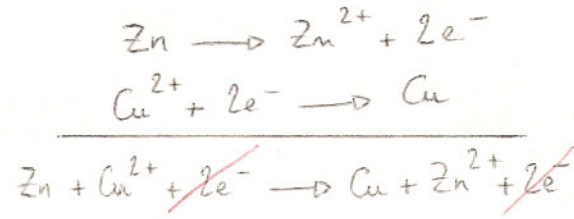 Zn → Zn²⁺ + 2e⁻
Cu²⁺ + 2e⁻ → Cu
Zn + Cu²⁺ + 2e⁻ → Cu + Zn²⁺ + 2e⁻